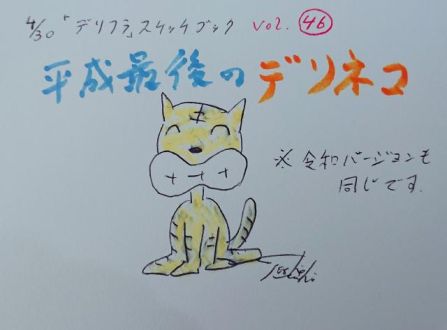 4/30「デリフラ」スケッチブック vol. 46
平成最後のデリネコ
※令和バージョンも
同じです。